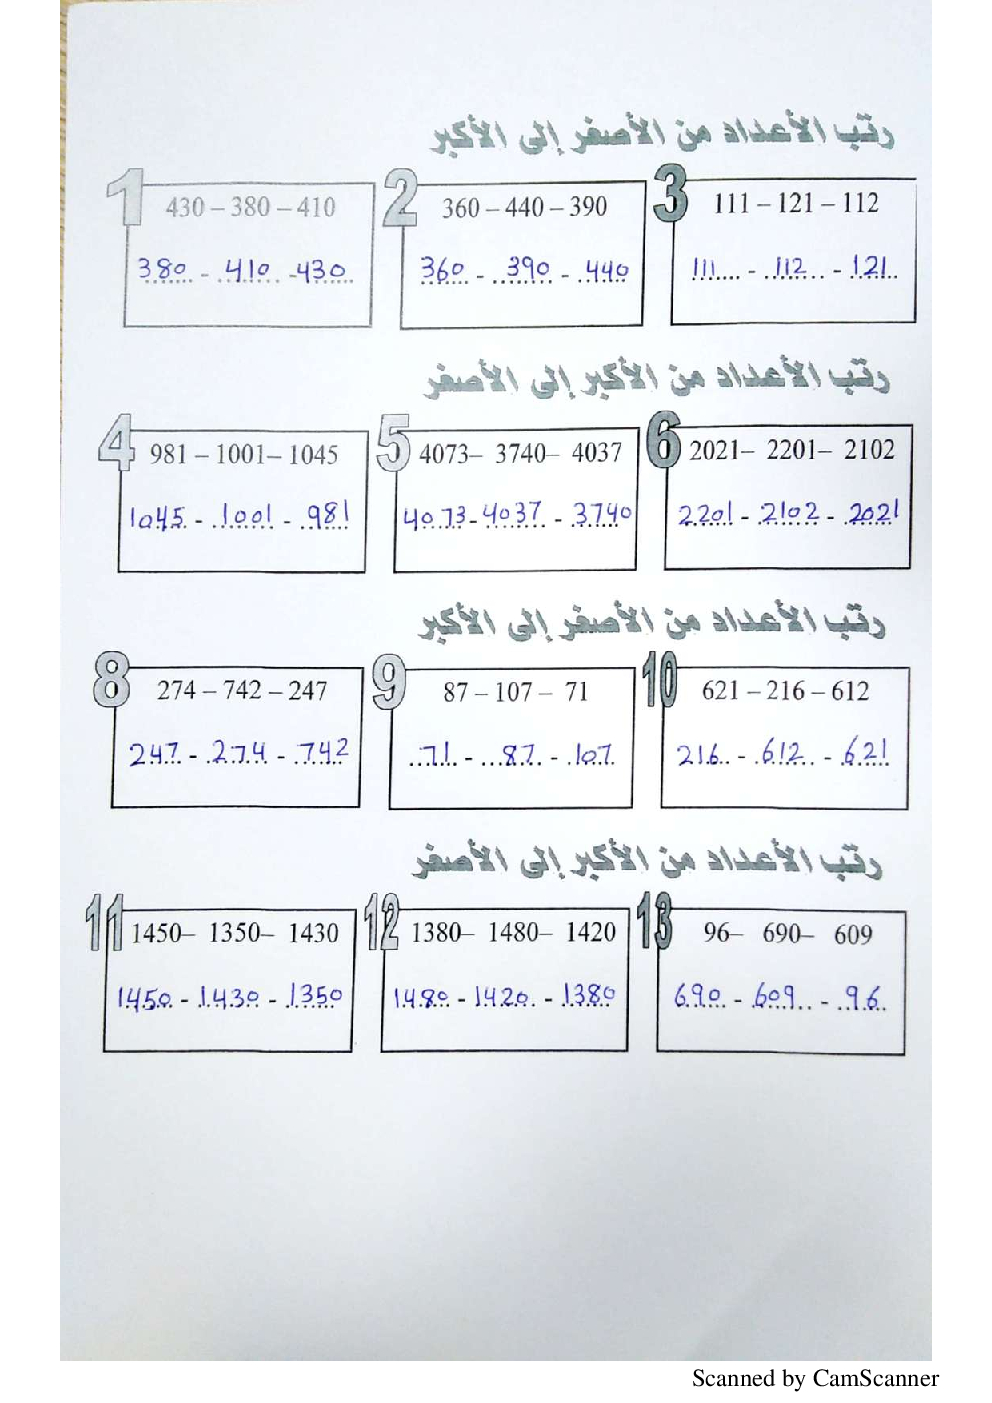 رتب الأعداد من الأصغر إلى الأكبر
1 430 – 380 – 410
380 - 410 - 430
2 360 – 440 – 390
360 - 390 - 440
3 111 – 121 – 112
111 - 112 - 121
رتب الأعداد من الأكبر إلى الأصغر
4 981 – 1001– 1045
1045 - 1001 - 981
5 4073– 3740– 4037
4073 - 4037 - 3740
6 2021– 2201– 2102
2201 - 2102 - 2021
رتب الأعداد من الأصغر إلى الأكبر
8 274 – 742 – 247
247 - 274 - 742
9 87 – 107 – 71
71 - 87 - 107
10 621 – 216 – 612
216 - 612 - 621
رتب الأعداد من الأكبر إلى الأصغر
11 1450– 1350– 1430
1450 - 1430 - 1350
12 1380– 1480– 1420
1480 - 1420 - 1380
13 96– 690– 609
690 - 609 - 96
Scanned by CamScanner